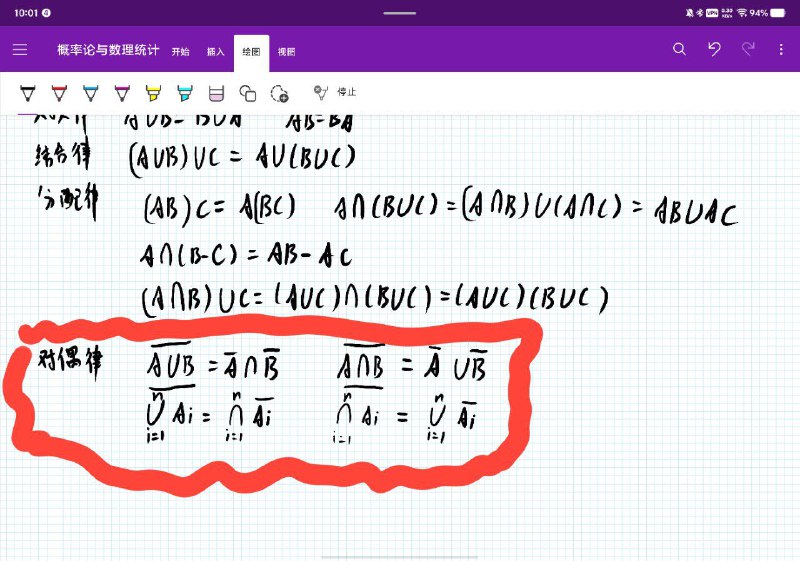 10:01
94%
概率论与数理统计 开始 插入 绘图 视图
停止
A∪B=B∪A AB=BA
结合律 (A∪B)∪C = A∪(B∪C)
分配律 (AB)C = A(BC) A∩(B∪C)=(A∩B)∪(A∩C) = AB∪AC
A∩(B-C) = AB-AC
(A∩B)∪C=(A∪C)∩(B∪C)=(A∪C)(B∪C)
对偶律 \overline{A∪B} = \overline{A}∩\overline{B} \overline{A∩B} = \overline{A}∪\overline{B}
\overline{\bigcup_{i=1}^{n} A_i} = \bigcap_{i=1}^{n} \overline{A_i} \overline{\bigcap_{i=1}^{n} A_i} = \bigcup_{i=1}^{n} \overline{A_i}